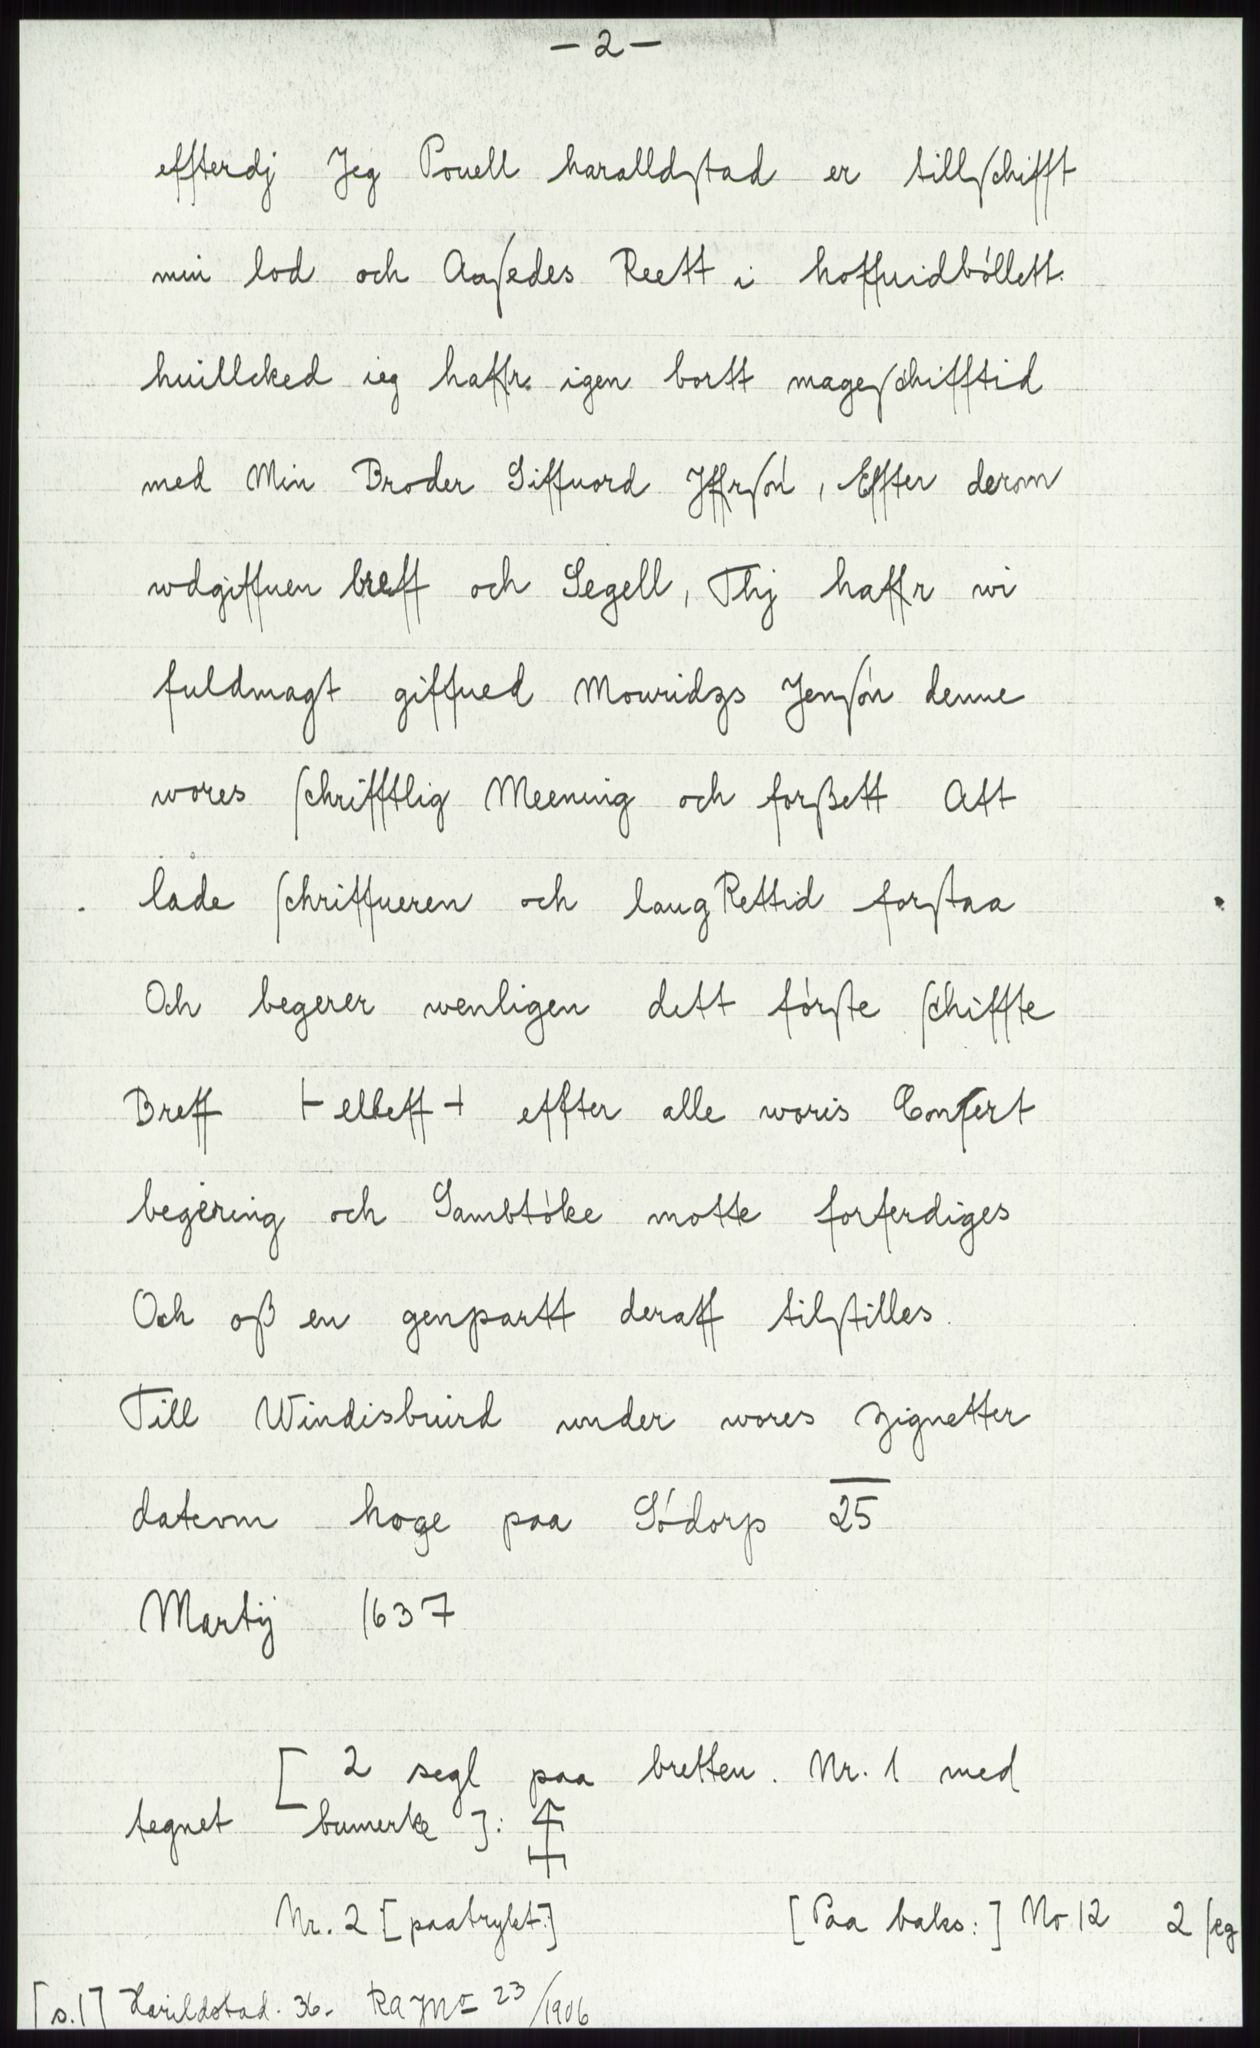 - 2 -
effterdj Jeg Pouell haralldstad er tillschifft
min lod och Aasedes Reett i hoffuidbóllett.
huillcked ieg haffr. igen bortt mageschifftid
med Min Broder Siffuord Jffrsón, Effter derom
wdgiffuen breff och Segell, Thj haffr wi
fuldmagt giffued Mouridzs Jensón denne
wores schrifftlig Meening och forßett Att
låde schriffueren och laug Rettid forstaa
Och begerer wenligen dett fórste schiffte
Breff ⊢ elleff ⊣ effter alle woris Consert
begering och Sambtóke motte forferdiges
Och oß en genpartt deraff tilstilles.
Till Windisbuird under wores zignetter
datum hoge paa Sódorp 25
Martij 1637
[ 2 segl paa bretten. Nr. 1 med
tegnet bumerke ]:
Nr. 2 [paatrykt.] [Paa baks:] No 12 2 seg
[s.1] Harildstad. 36. RA JNo 23/1906